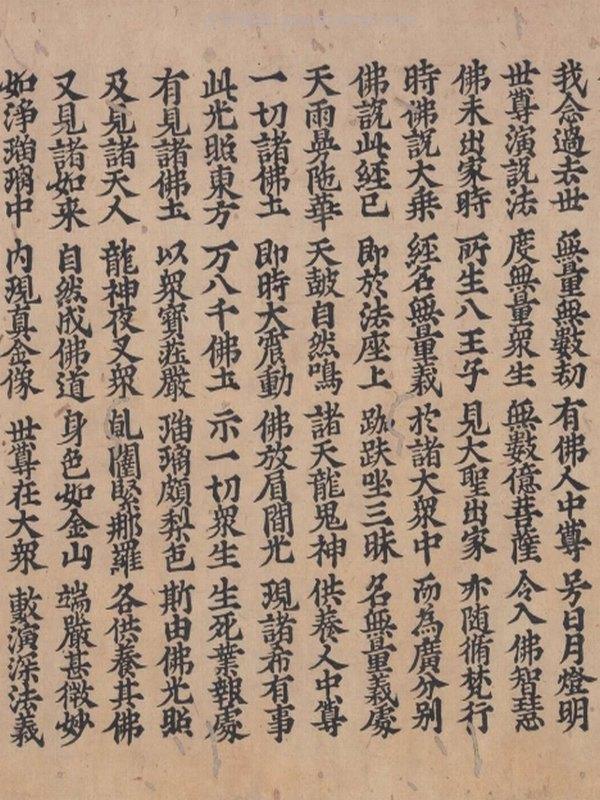 我念過去世 無量無數劫 有佛人中尊 号日月燈明
世尊演說法 度無量衆生 無數億菩薩 令入佛智慧
佛未出家時 所生八王子 見大聖出家 亦随脩梵行
時佛說大乗 經名無量義 於諸大衆中 而為廣分別
佛說此經已 即於法座上 跏趺坐三昧 名無量義處
天雨曼陁華 天鼓自然鳴 諸天龍鬼神 供養人中尊
一切諸佛土 即時大震動 佛放眉間光 現諸希有事
此光照東方 万八千佛土 示一切衆生 生死業報處
有見諸佛土 以衆寶莊嚴 瑠璃頗梨色 斯由佛光照
及見諸天人 龍神夜叉衆 乹闥緊那羅 各供養其佛
又見諸如来 自然成佛道 身色如金山 端嚴甚微妙
如淨瑠璃中 内現真金像 世尊在大衆 敷演深法義